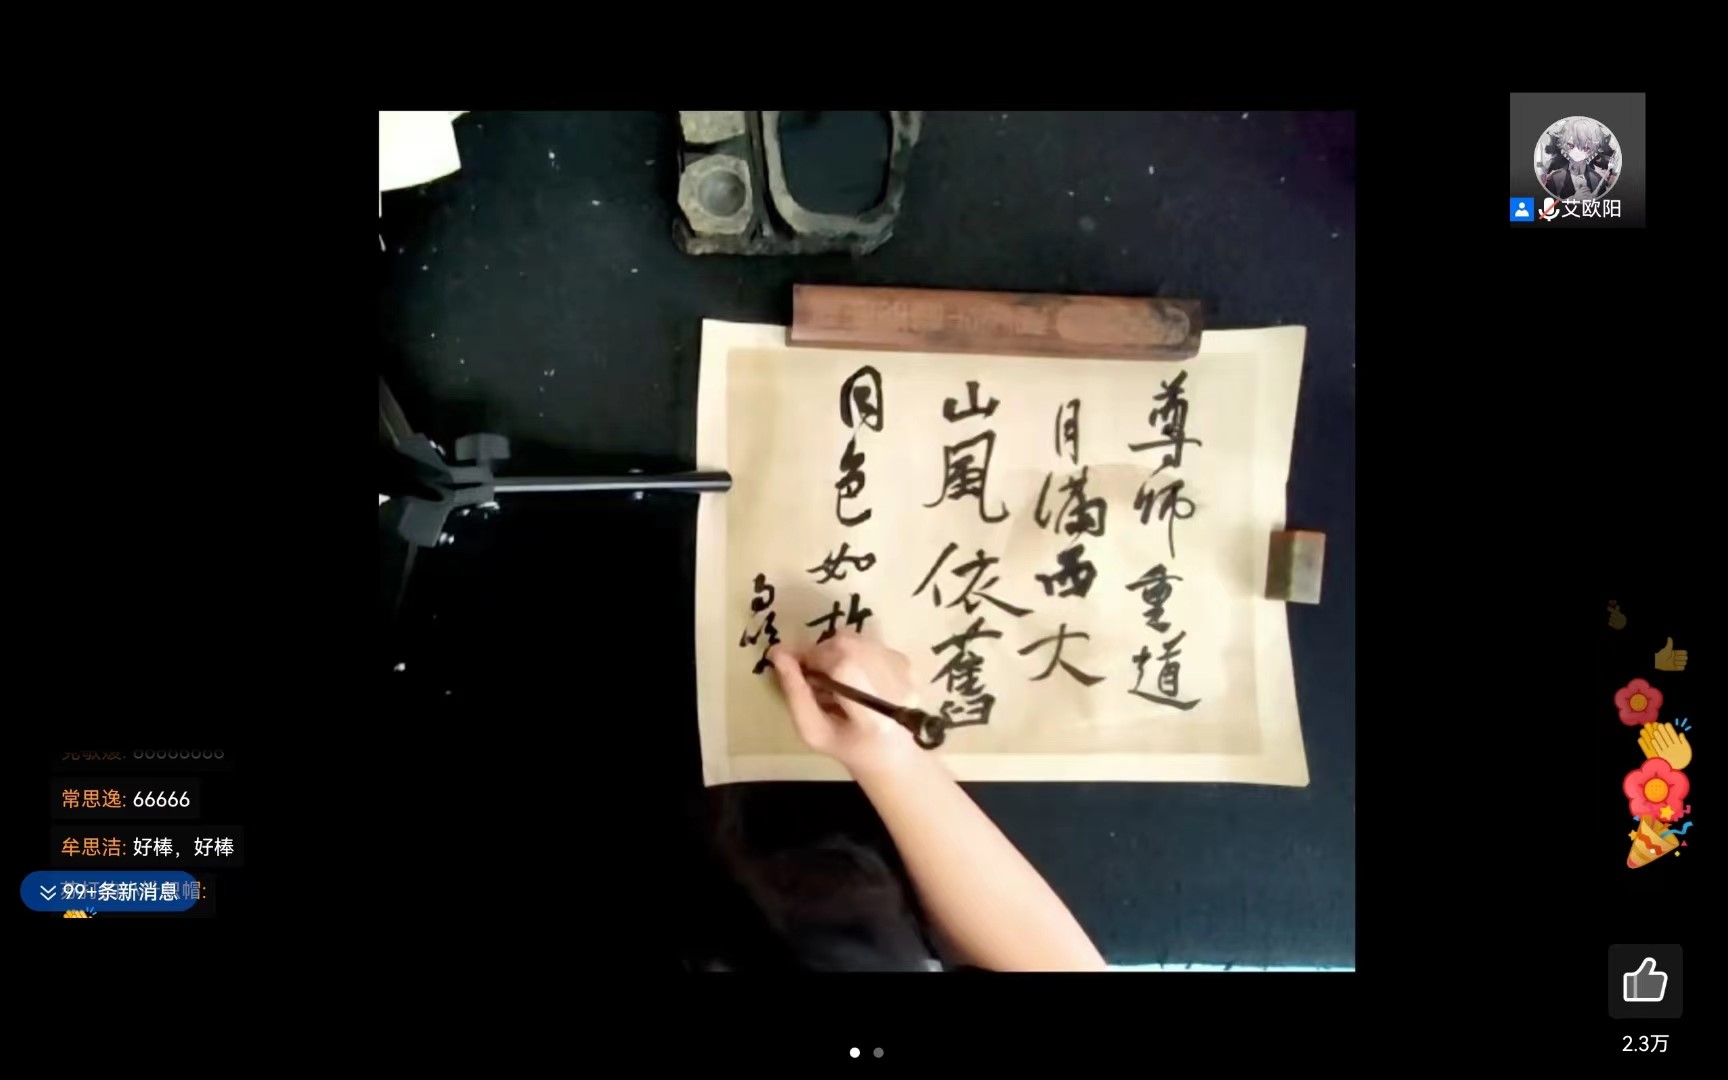 尊师重道
月满西大
山风依舊
月色如故
艾欧阳
常思逸: 66666
牟思洁: 好棒，好棒
99+条新消息
2.3万